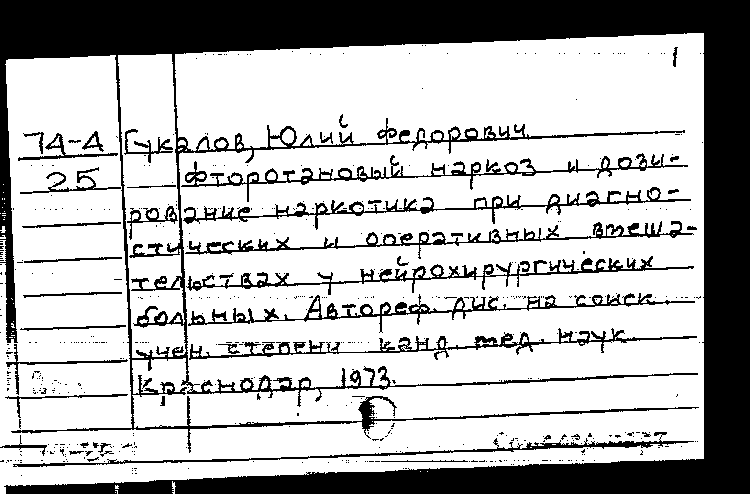 1
74-А Гукалов, Юлий Федорович
25 Фторотановый наркоз и дози-
рование наркотика при диагно-
стических и оперативных вмеша-
тельствах у нейрохирургических
больных. Автореф. дис. на соиск.
учен. степени канд. мед. наук.
Краснодар, 1973.